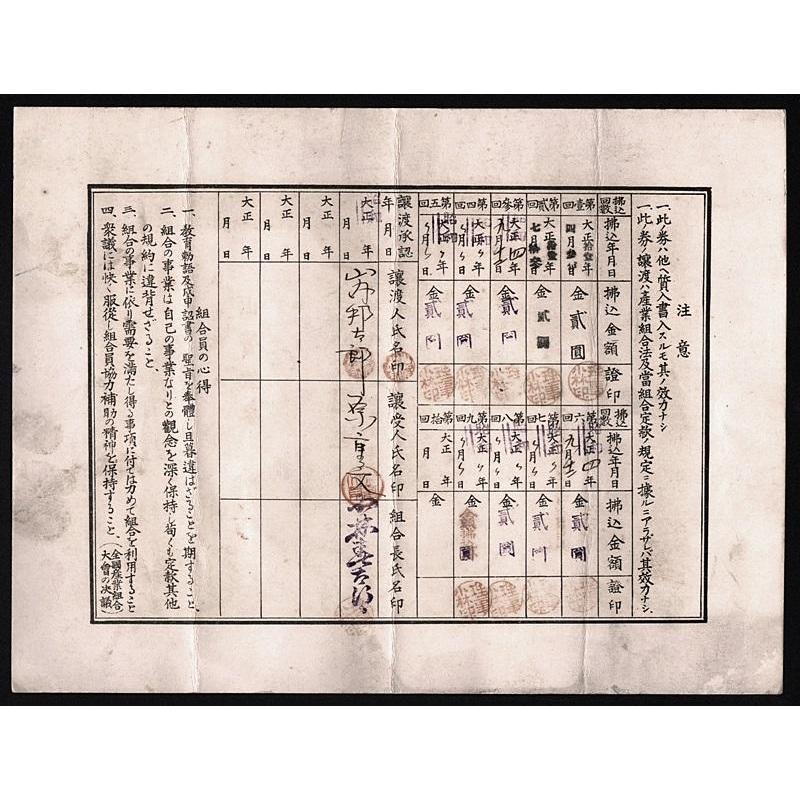 注意
一、此券ハ他ヘ質入書入スルモ其ノ效力ナシ
一、此券ノ讓渡ハ產業組合法及當組合定款ノ規定ニ據ルニアラザレバ其效力ナシ
拂込回數 拂込年月日 拂込金額 證印
第壹回 大正拾壹年四月 日 金貳圓
第貳回 大正拾壹年七月 日 金貳圓
第參回 大正 年九月 日 金貳圓
第四回 大正 年 月 日 金貳圓
第五回 大正 年 月 日 金貳圓
拂込回數 拂込年月日 拂込金額 證印
第六回 大正 年九月 日 金貳圓
第七回 大正 年 月 日 金貳圓
第八回 大正 年 月 日 金貳圓
第九回 大正 年 月 日 金 圓
第拾回 大正 年 月 日 金
讓渡承認年月日 讓渡人氏名印 讓受人氏名印 組合長氏名印
大正 年 月 日
大正 年 月 日
大正 年 月 日
大正 年 月 日
組合員の心得
一、教育勅語及戊申詔書の聖旨を奉體し旦暮違はざることを期すること、
二、組合の事業は自己の事業なりとの觀念を深く保持し苟くも定款其他
の規約に違背せざること、
三、組合の事業に依り需要を滿たし得る事項に付ては力めて組合を利用すること
四、衆議には快く服從し組合員協力補助の精神を保持すること、(全國產業組合大會の決議)